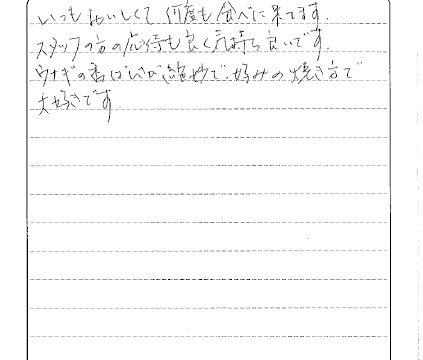 いつもおいしくて何度も食べに来てます.
スタッフの方の応待も良く気持ち良いです.
ウナギの香ばしさが絶妙で、好みの焼き方で
大好きです